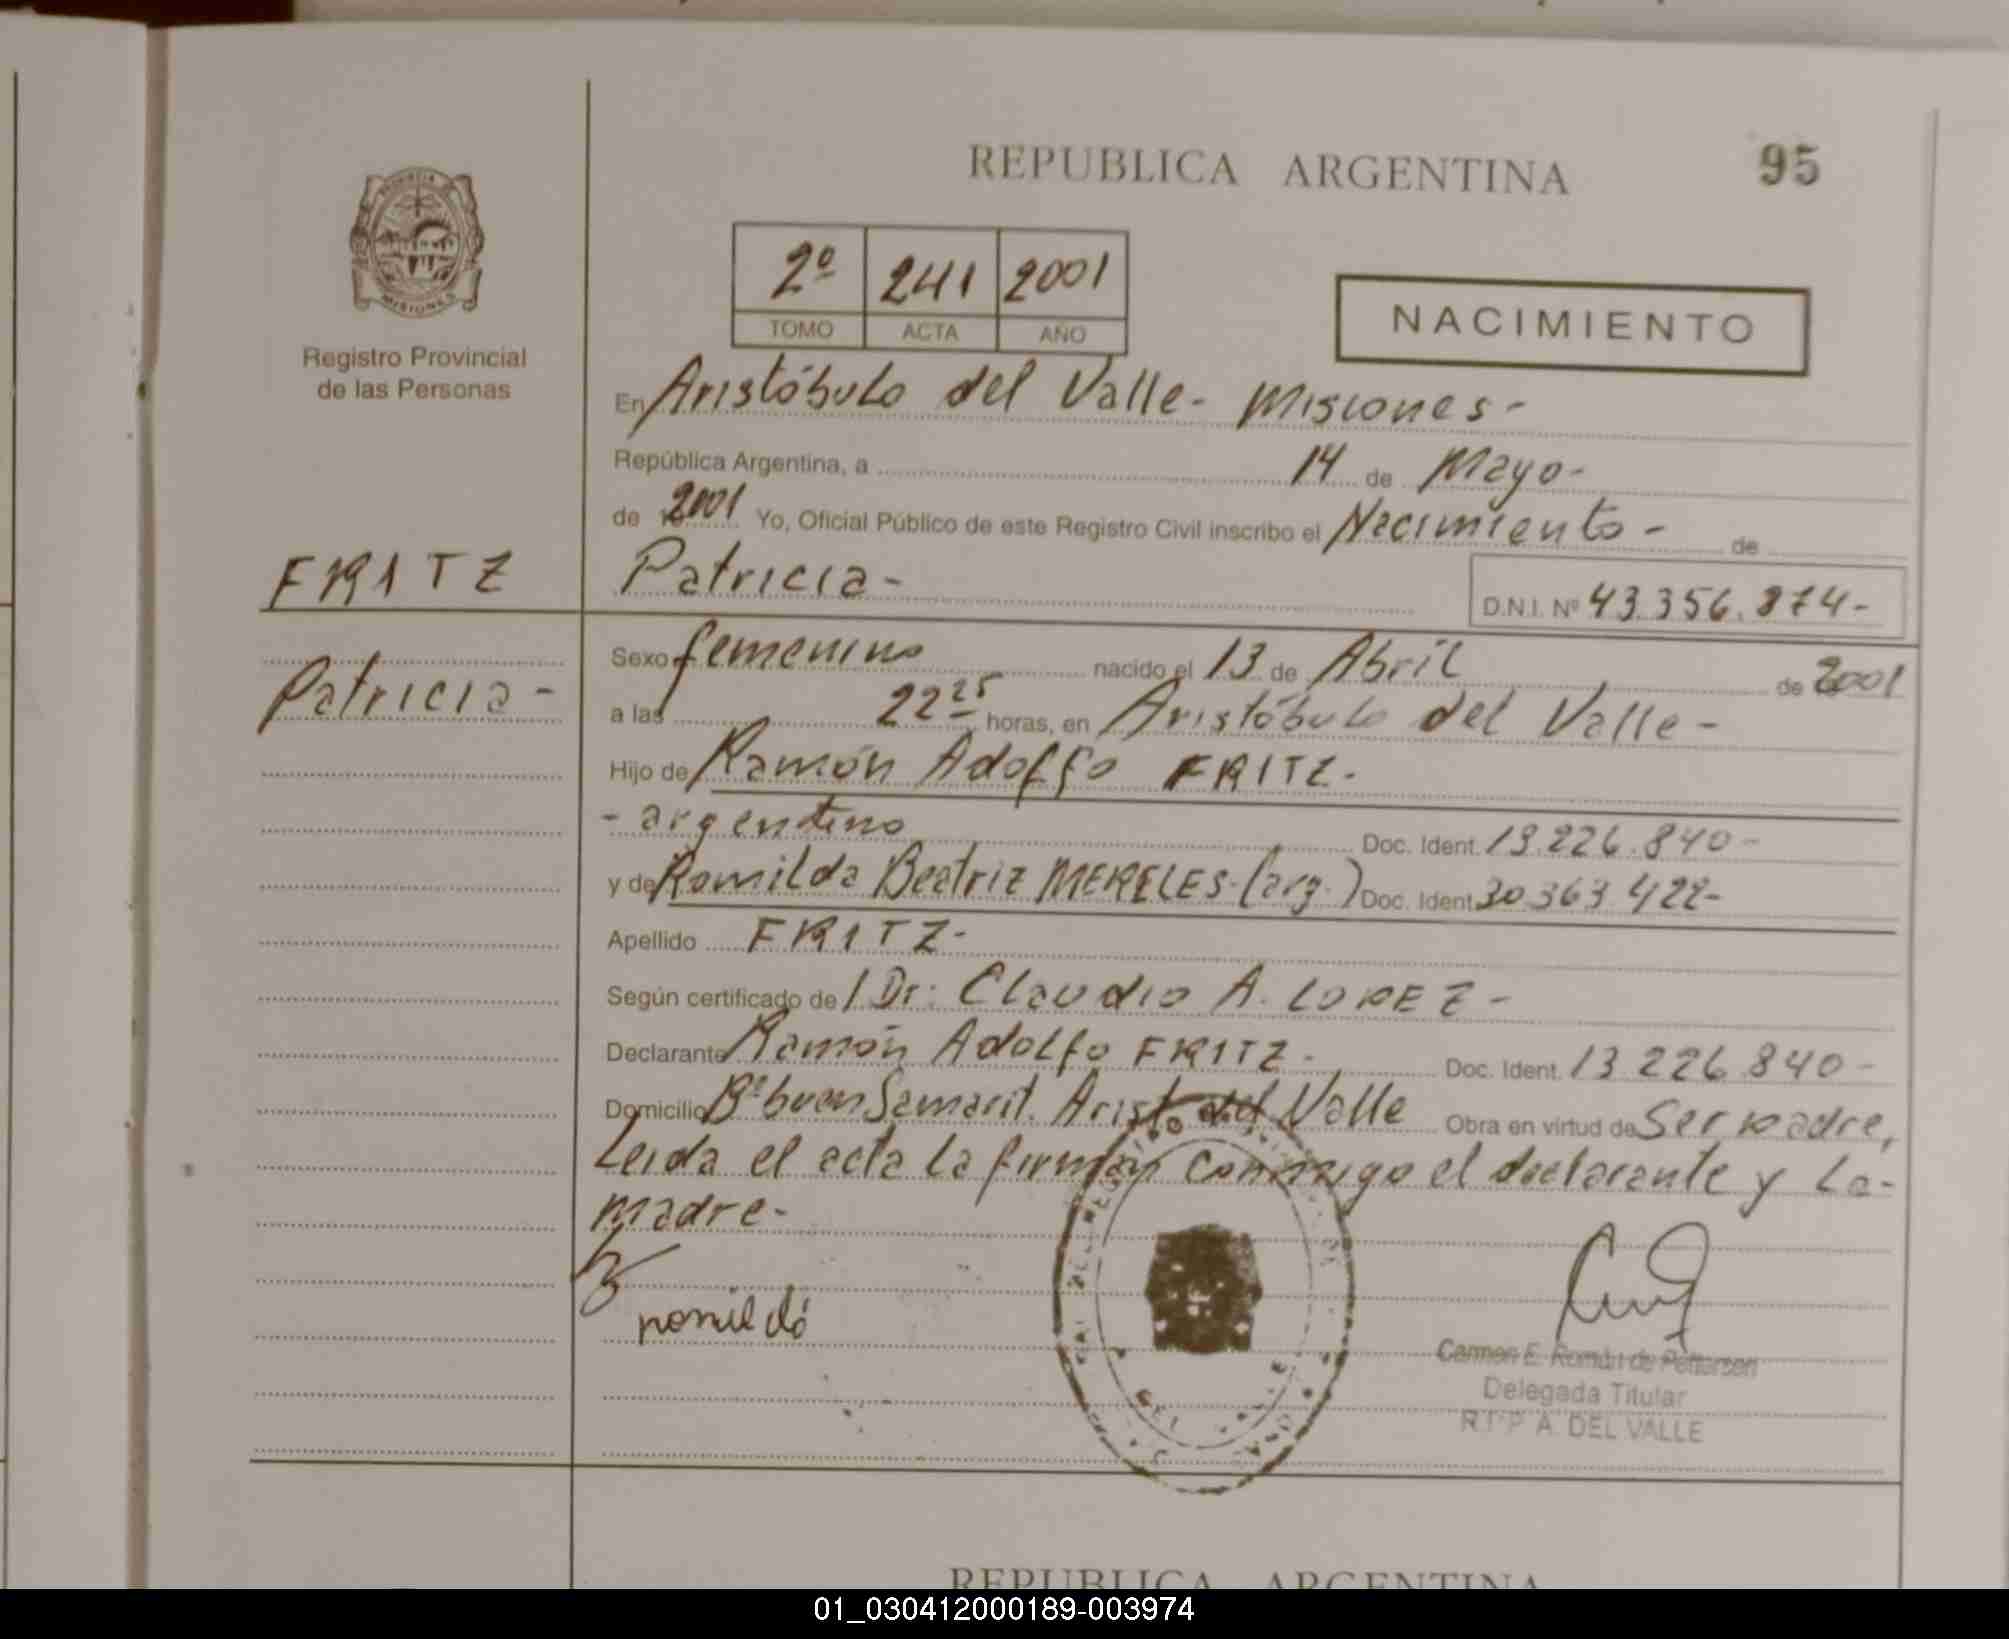 REPUBLICA ARGENTINA
95
PROVINCIA DE
MISIONES
Registro Provincial
de las Personas
2º 241 2001
TOMO ACTA AÑO
NACIMIENTO
En Aristóbulo del Valle- Misiones-
República Argentina, a 14 de Mayo-
de 2001 Yo, Oficial Público de este Registro Civil inscribo el Nacimiento- de
FRITZ
Patricia-
D.N.I. Nº 43.356.874-
Patricia-
Sexo femenino nacido el 13 de Abril de 2001
a las 22 25 horas, en Aristóbulo del Valle-
Hijo de Ramón Adolfo FRITZ.
- argentino Doc. Ident. 13.226.840-
y de Romilda Beatriz MERELES-(arg.) Doc. Ident. 30.363.422-
Apellido FRITZ-
Según certificado de / Dr. Claudio A. LOPEZ-
Declarante Ramón Adolfo FRITZ- Doc. Ident. 13.226.840-
Domicilio Bº buen Samarit. Arist. del Valle Obra en virtud de Ser padre,
Leida el acta la firman conmigo el declarante y la-
madre-
romildó
Carmen E. Román de
Delegada Titular
R.P.P. A. DEL VALLE
REPUBLICA ARGENTINA
01_030412000189-003974